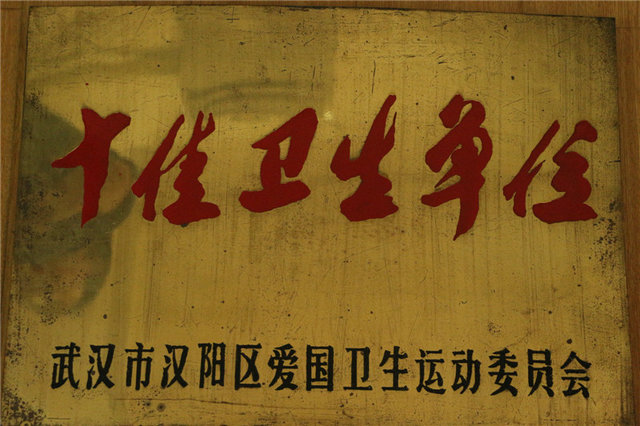 十佳卫生单位
武汉市汉阳区爱国卫生运动委员会